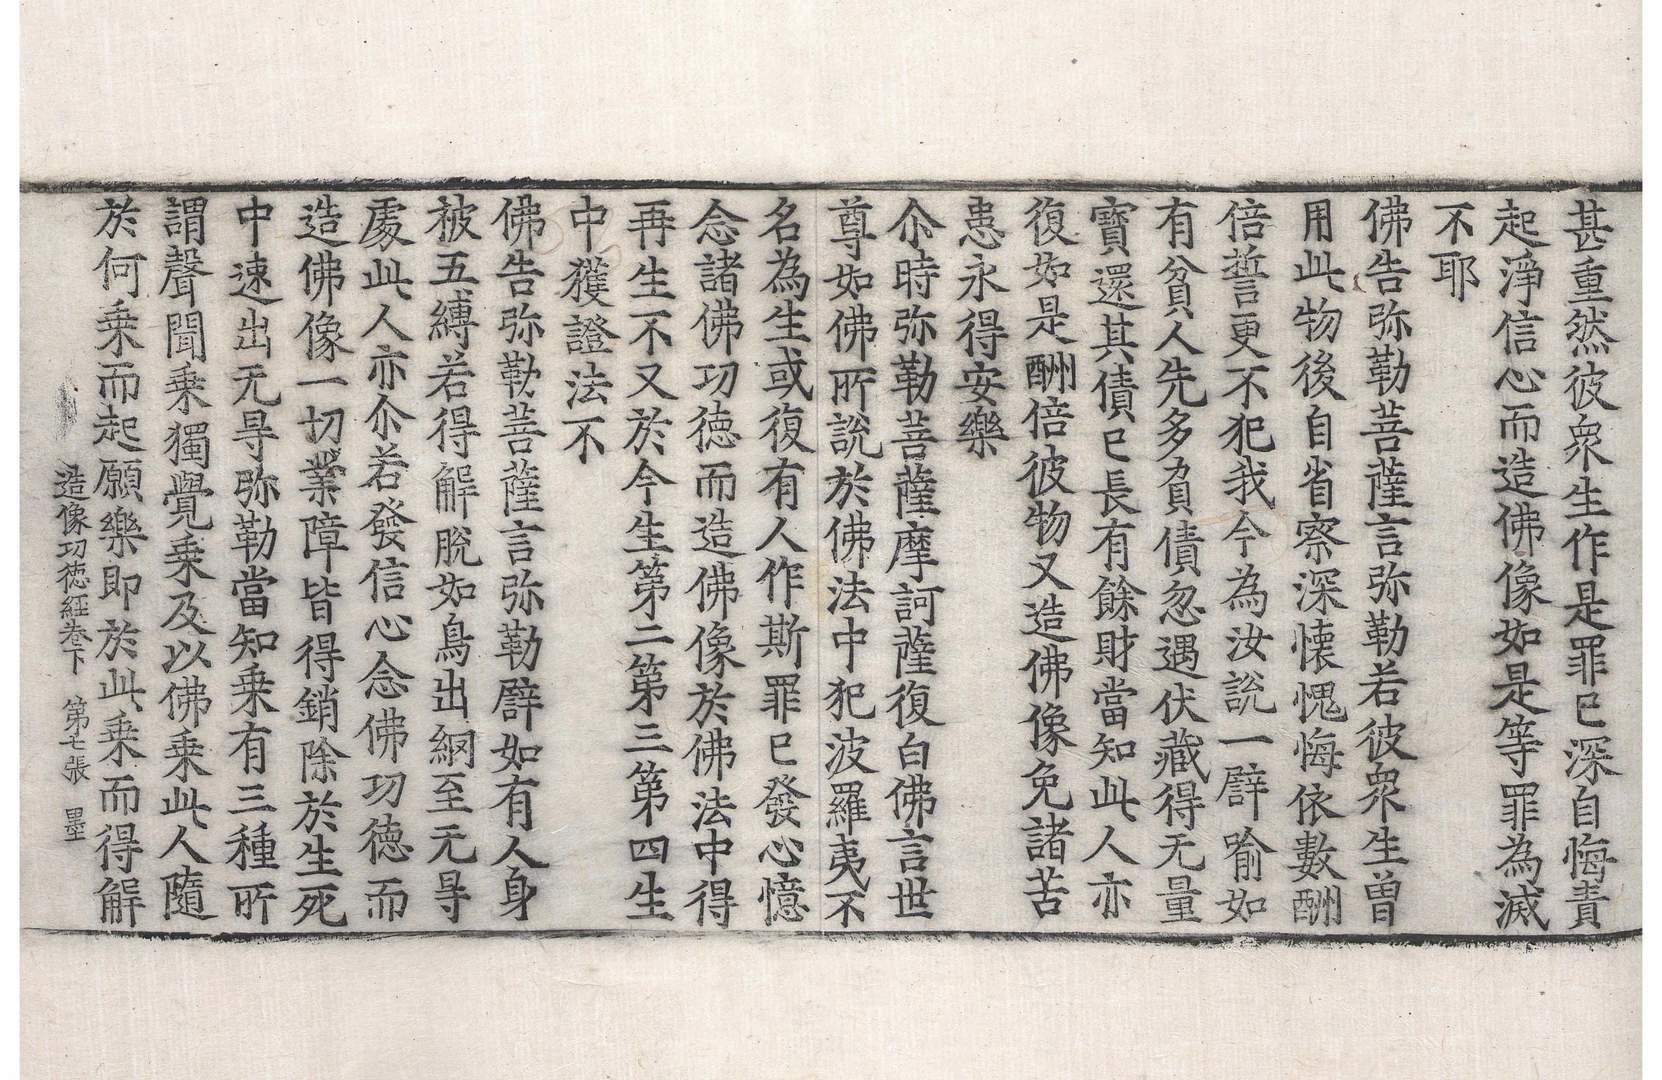 甚重然彼衆生作是罪已深自悔責
起淨信心而造佛像如是等罪為滅
不耶
佛告弥勒菩薩言弥勒若彼衆生曾
用此物後自省察深懷愧悔依數酬
倍誓更不犯我今為汝說一譬喻如
有貧人先多負債忽遇伏藏得无量
寶還其債已長有餘財當知此人亦
復如是酬倍彼物又造佛像免諸苦
患永得安樂
尒時弥勒菩薩摩訶薩復白佛言世
尊如佛所說於佛法中犯波羅夷不
名為生或復有人作斯罪已發心憶
念諸佛功徳而造佛像於佛法中得
再生不又於今生第二第三第四生
中獲證法不
佛告弥勒菩薩言弥勒譬如有人身
被五縛若得解脫如鳥出網至无㝵
處此人亦尒若發信心念佛功徳而
造佛像一切業障皆得銷除於生死
中速出无㝵弥勒當知乗有三種所
謂聲聞乗獨覺乗及以佛乗此人隨
於何乗而起願樂即於此乗而得解
造像功徳經卷下　第七張　墨